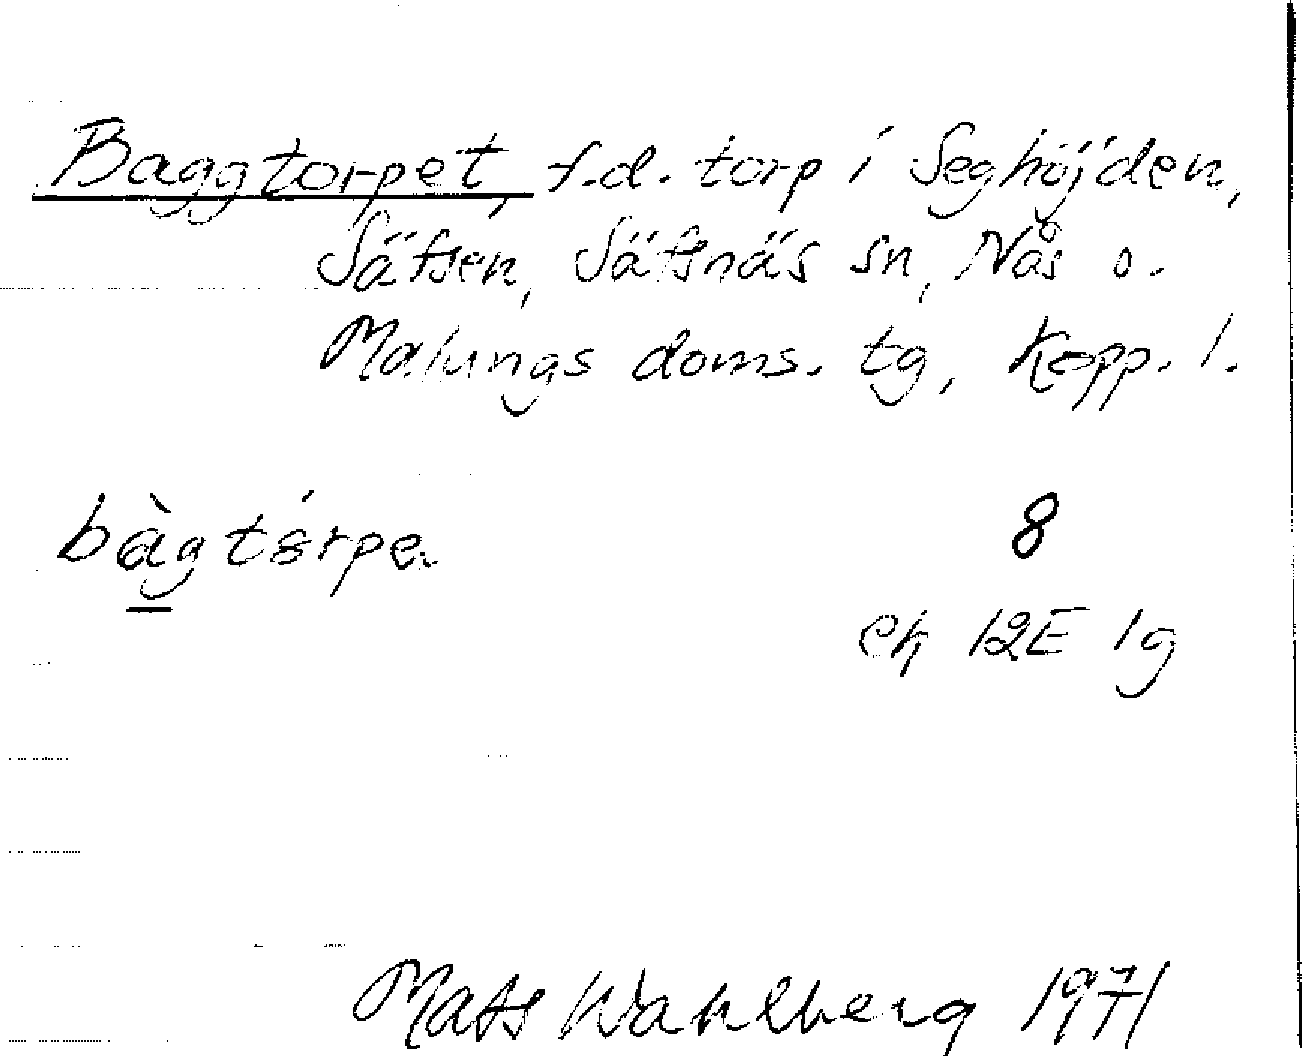 Baggtorpet, f.d. torp i Seghöjden,
Säfsen, Säfsnäs sn, Nås o.
Malungs doms. tg, Kopp. l.
bàgtórpe.
8
ek 12E 1g
Mats Wahlberg 1971